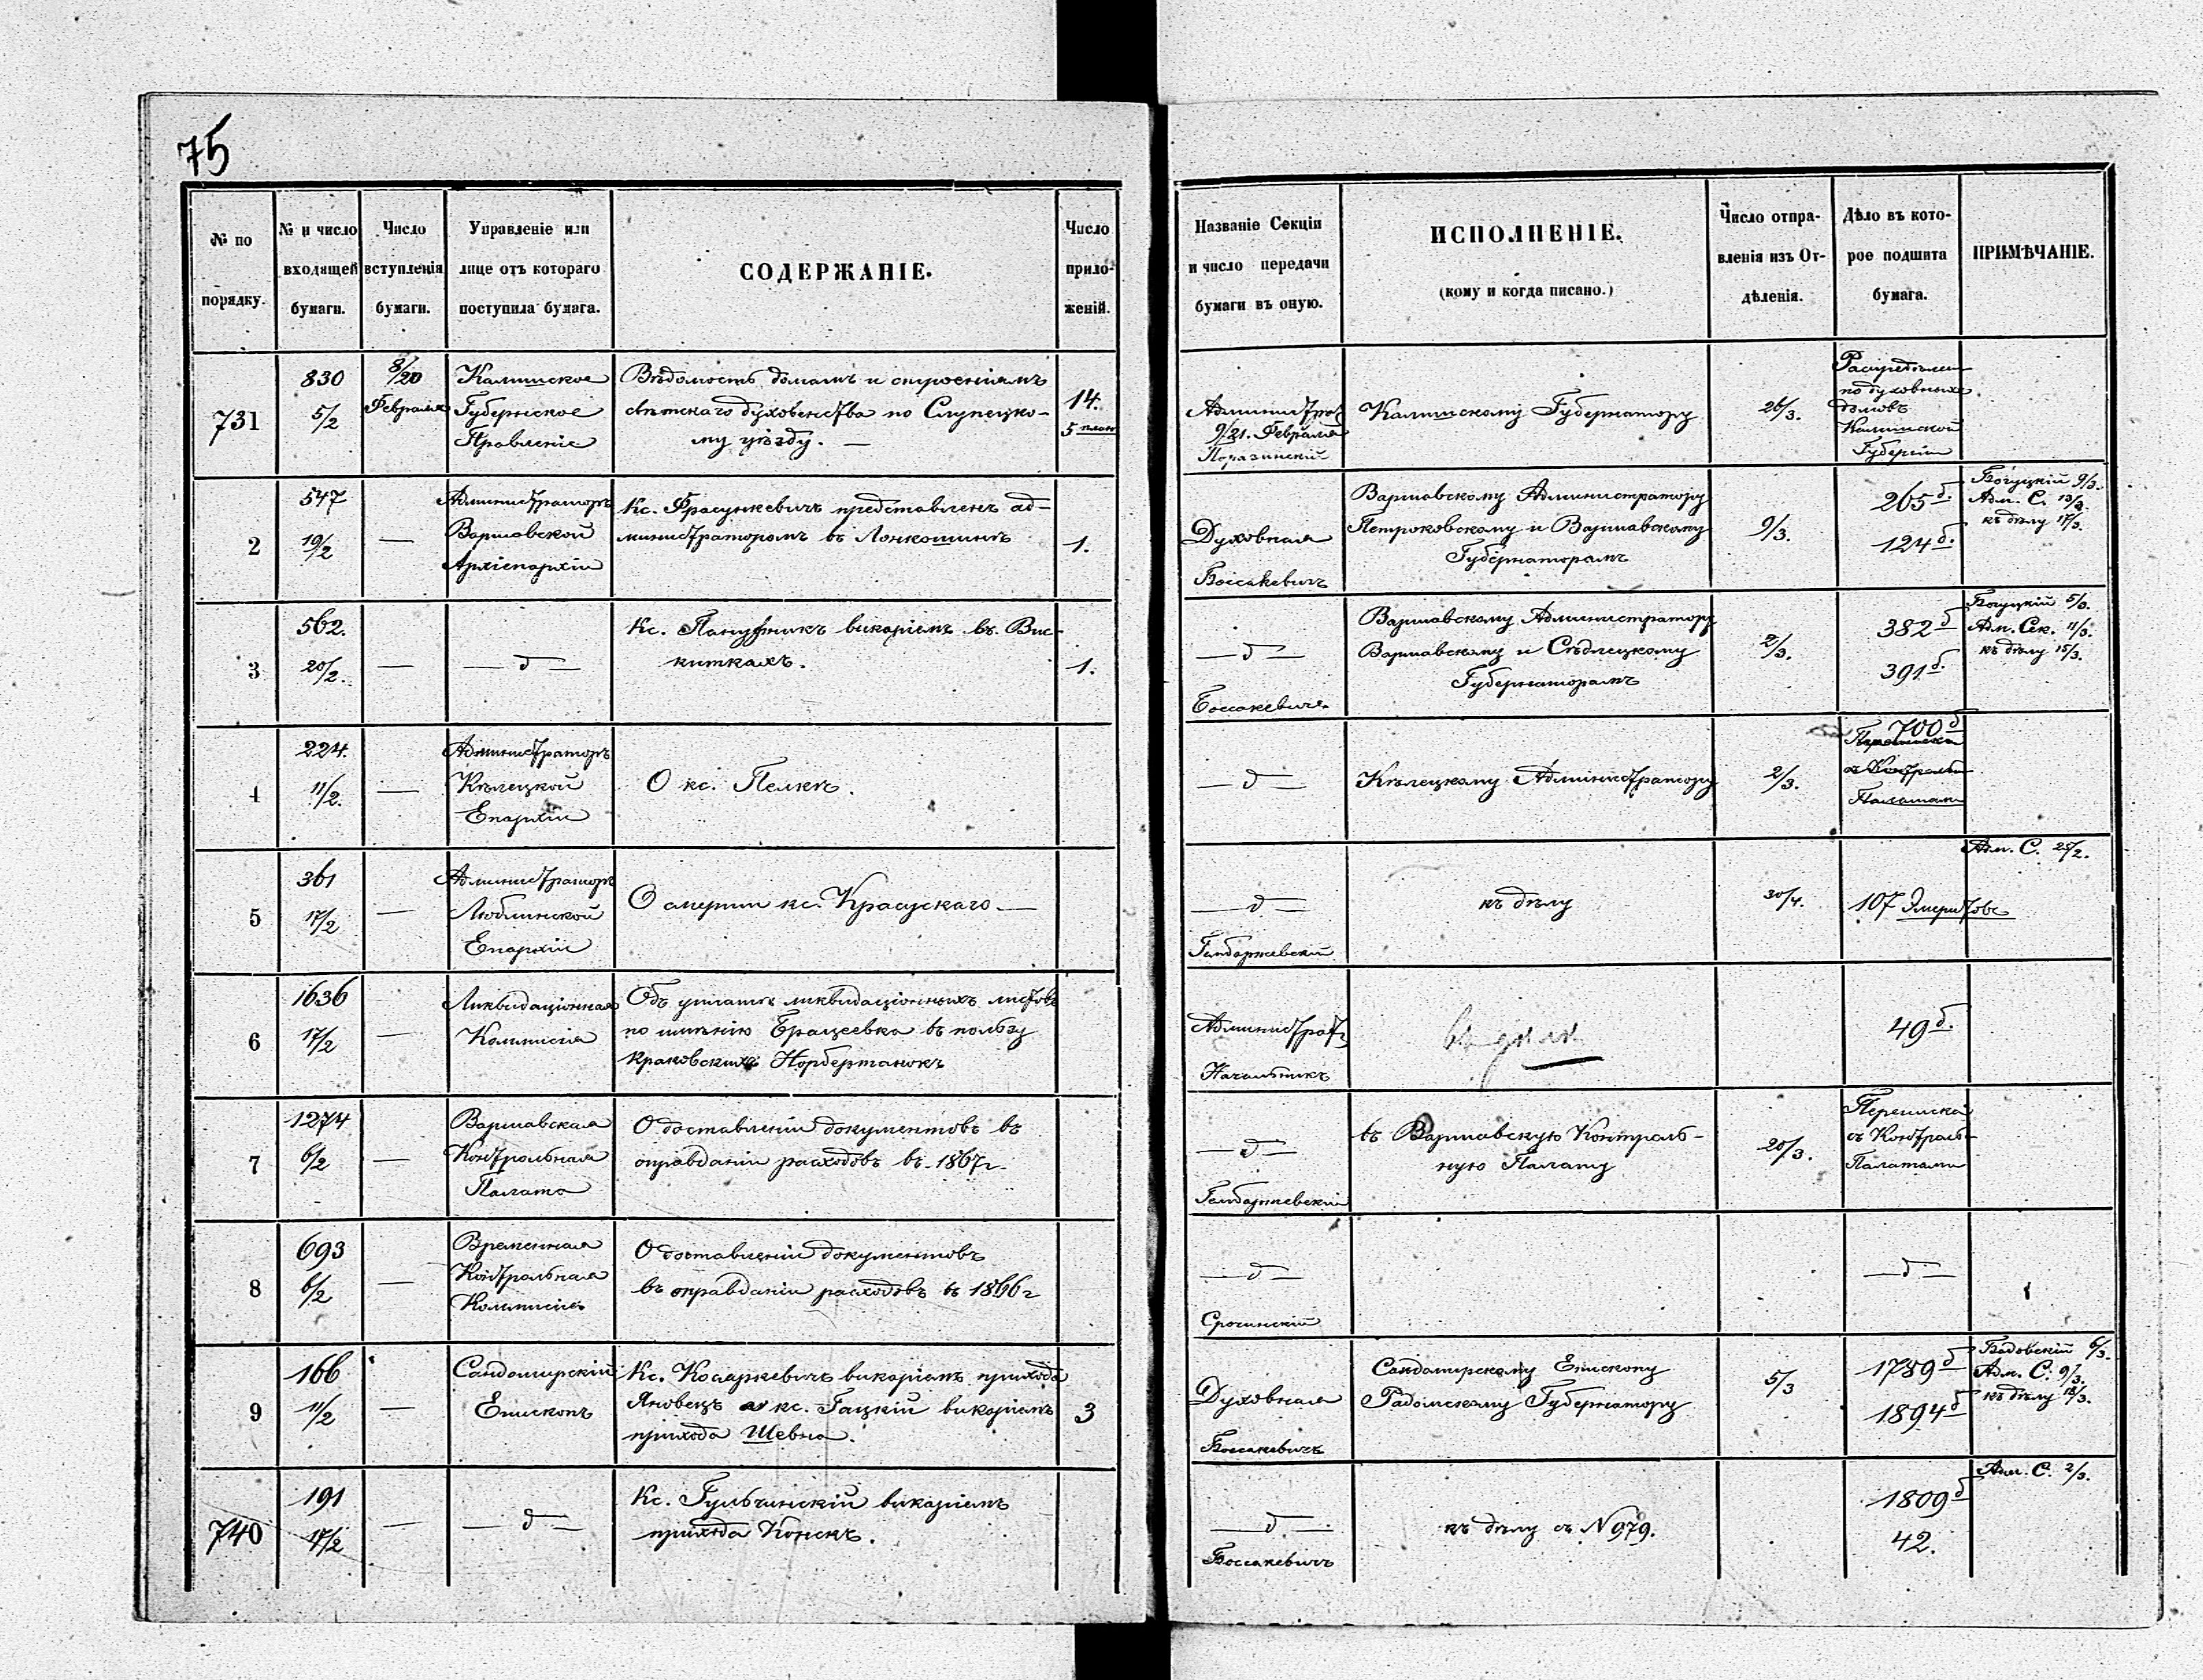 75
№ по порядку.
№ и число входящей бумаги.
Число вступленія бумаги.
Управленіе или лице отъ котораго поступила бумага.
СОДЕРЖАНІЕ.
Число приложеній.
Названіе Секціи и число передачи бумаги въ оную.
ИСПОЛНЕНІЕ.
(кому и когда писано.)
Число отправленія изъ Отдѣленія.
Дѣло въ которое подшита бумага.
ПРИМѢЧАНІЕ.
731
830
5/2
8/20
Февраля
Калишское
Губернское
Правленіе
Вѣдомость домамъ и строеніямъ
свѣтскаго духовенства по Слупецко-
му уѣзду. —
14.
5 план
Администрат
9/21. Февраля
Калишскому Губернатору
26/3.
по духовныхъ
домовъ
Калишской
Губерніи
2
547
19/2
—
Администраторъ
Варшавской
Архіепархіи
Кс. Фрасункевичъ представленъ ад-
министраторомъ въ Лонкошинъ
1.
Духовная
Боссакевичъ
Варшавскому Администратору
Петроковскому и Варшавскому
Губернаторамъ
9/3.
265 б.
124 б.
Богуцкій 9/3.
Адм. С. 13/3.
къ дѣлу 17/3.
3
562.
20/2.
—
— д —
Кс. Пануфникъ викаріемъ въ Вис-
киткахъ.
1.
— д —
Боссакевичъ
Варшавскому Администратору
Варшавскому и Сѣдлецкому
Губернаторамъ
2/3.
382 б
391 б.
Богуцкій 5/3.
Адм. Сек. 11/3.
къ дѣлу 15/3.
4
224.
11/2.
—
Администраторъ
Кѣлецкой
Епархіи
О кс. Пелкѣ.
— д —
Кѣлецкому Администратору
2/3.
700 б
Переписка
съ Контрольн
Палатами
5
361
17/2
—
Администраторъ
Люблинской
Епархіи
О смерти кс. Красускаго. —
— д —
къ дѣлу
30/4.
107 Эмеритовъ
Адм. С. 25/2.
6
1636
17/2
—
Ликвидаціонная
Комиссія
Объ уплатѣ ликвидаціонныхъ листовъ
по имѣнію Брацеевка въ пользу
Краковскихъ Норбертанокъ
Администрат
Начальникъ
49 б.
7
1274
6/2
—
Варшавская
Контрольная
Палата
О доставленіи документовъ въ
оправданіи расходовъ въ 1867 г.
— д —
въ Варшавскую Контроль-
ную Палату
20/3.
Переписка
съ Контрольн
Палатами
8
693
6/2
—
Временная
Контрольная
Коммисія
О доставленіи документовъ
въ оправданіи расходовъ въ 1866 г
— д —
Срочинскій
— д —
9
166
11/2
—
Сандомирскій
Епископъ
Кс. Косаркевичъ викаріемъ прихода
Яновецъ а кс. Гацкій викаріемъ
прихода Шевна.
3
Духовная
Боссакевичъ
Сандомирскому Епископу
Радомскому Губернатору
5/3
1789 б
1894 б
Бадовскій 6/3.
Адм. С. 9/3.
къ дѣлу 13/3.
740
191
17/2
—
— д —
Кс. Гульчинскій викаріемъ
прихода Конскъ.
— д —
Боссакевичъ
къ дѣлу съ N 979.
1809 б
42.
Адм. С. 2/3.